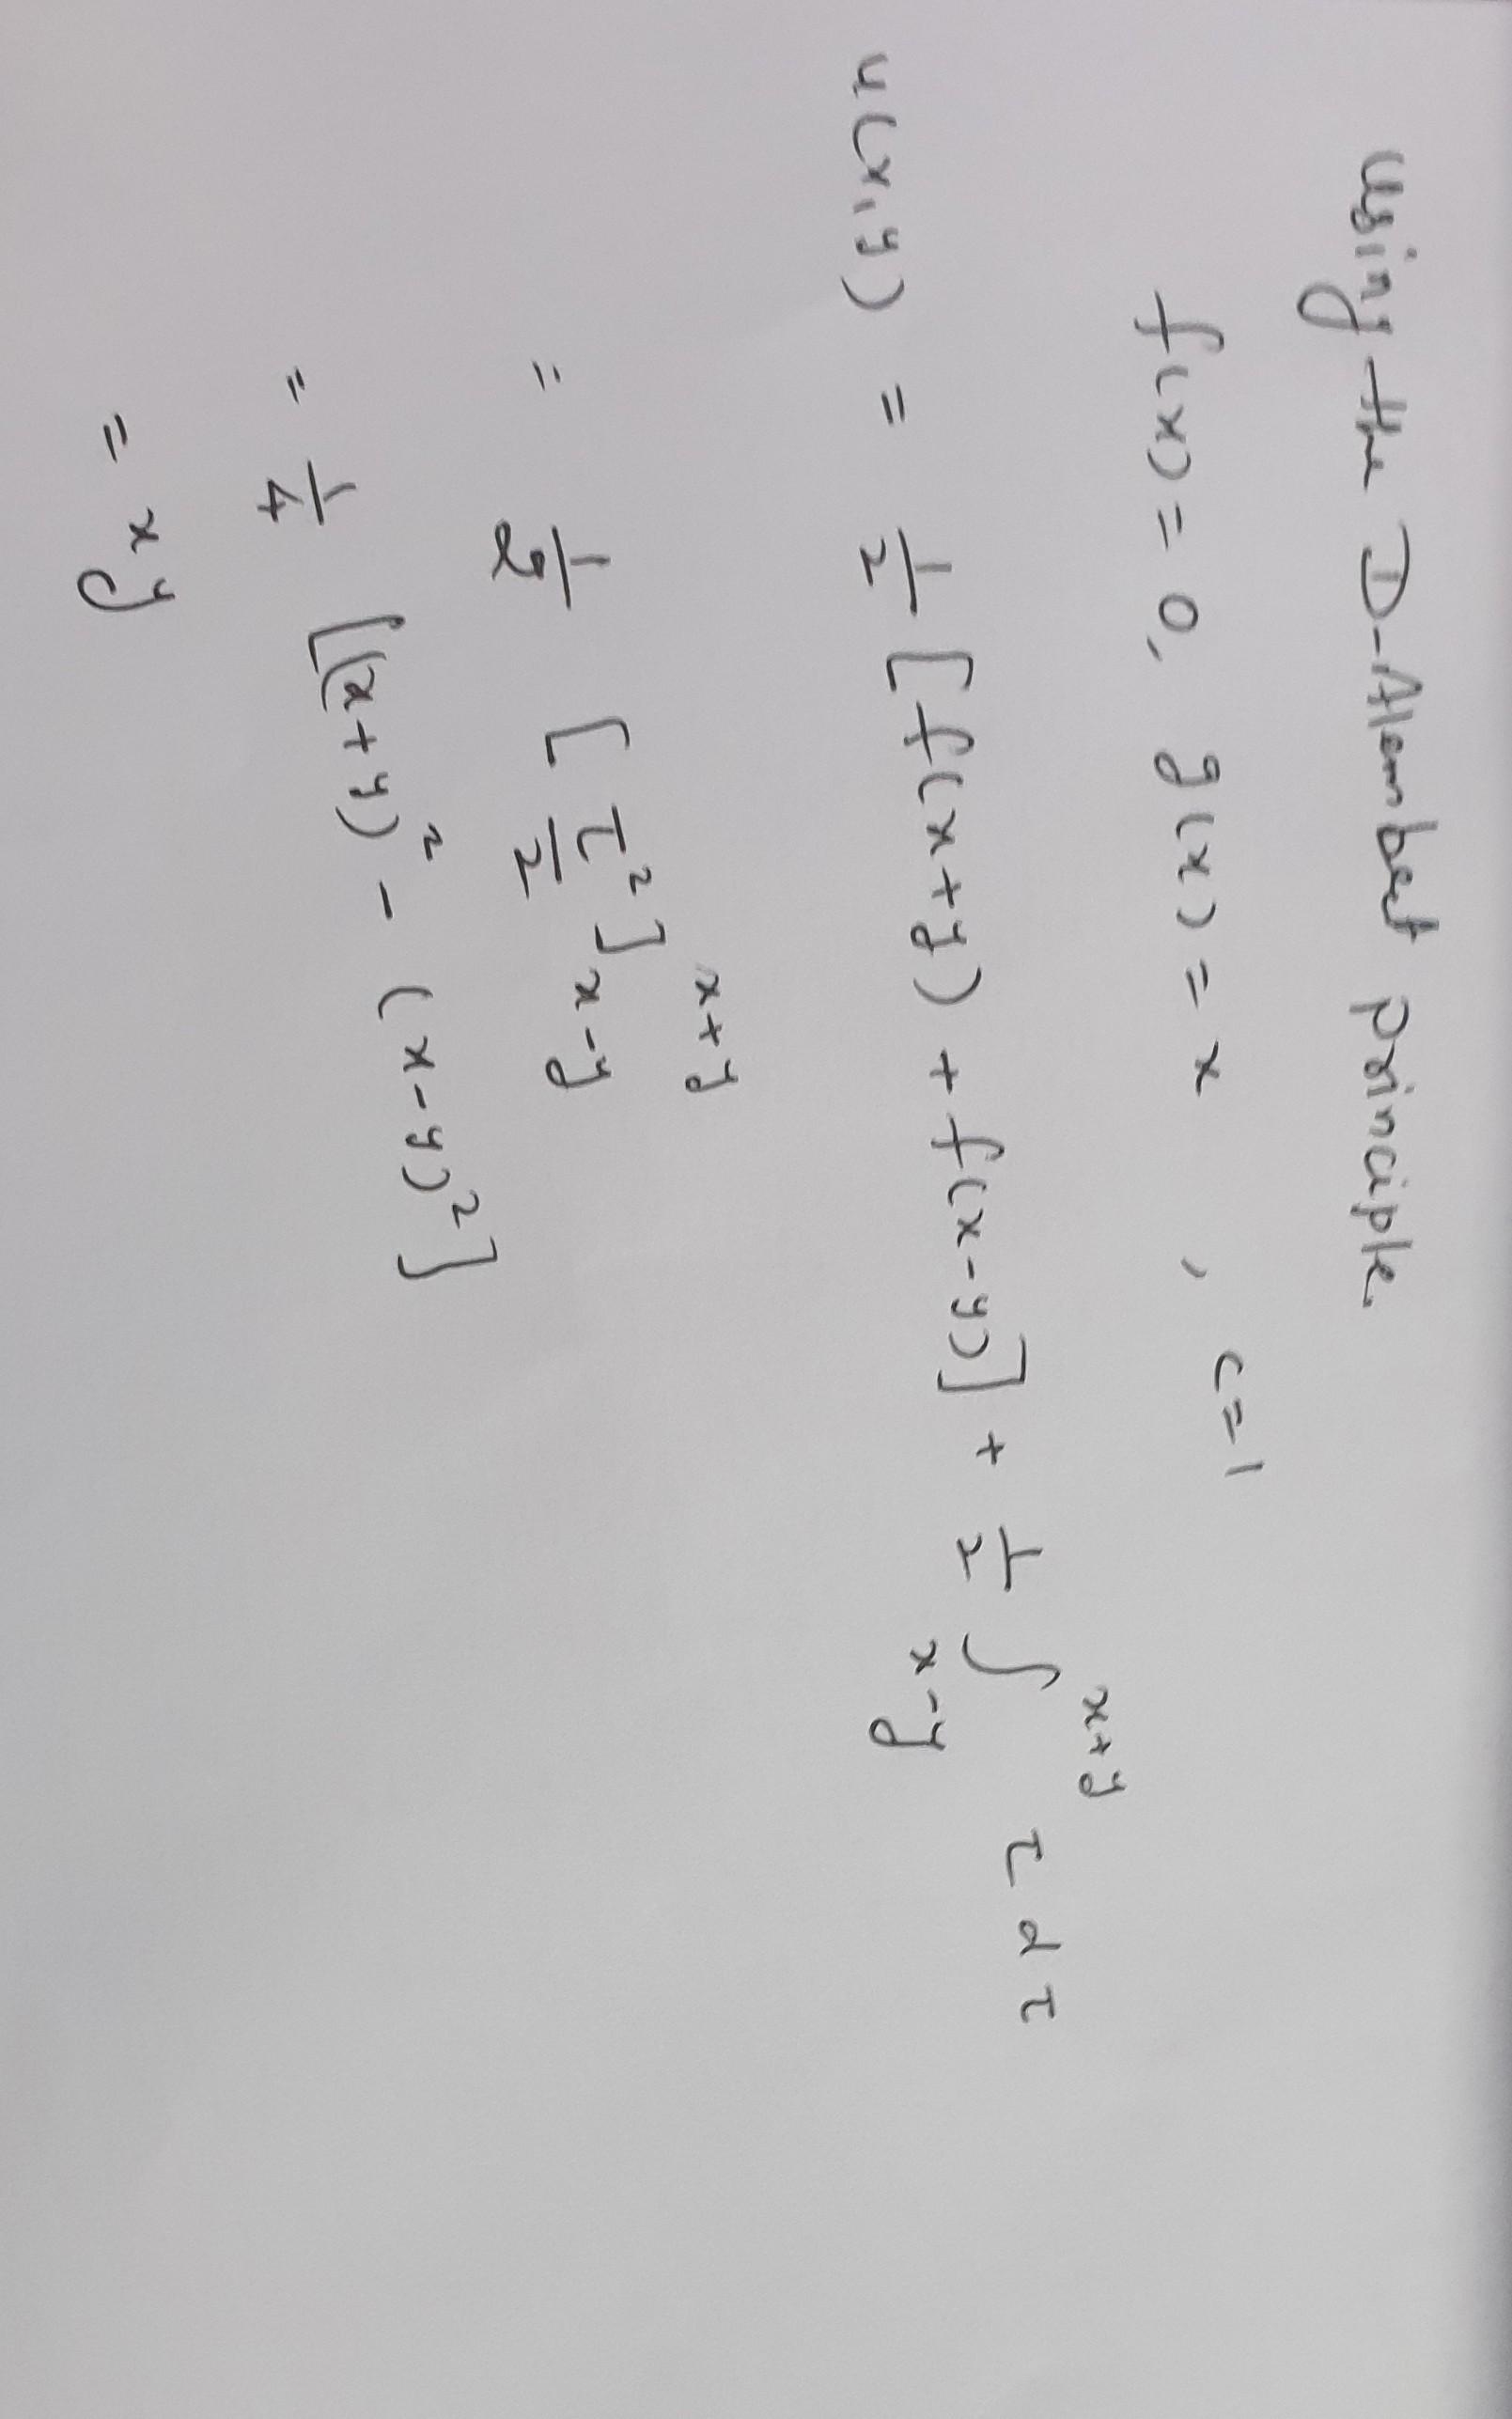 Using the D-Alembert principle.
f(x) = 0, g(x) = x , c=1
u(x,y) = 1/2 [f(x+y) + f(x-y)] + 1/2 ∫_{x-y}^{x+y} τ dτ
= 1/2 [τ²/2]_{x-y}^{x+y}
= 1/4 [(x+y)² - (x-y)²]
= xy